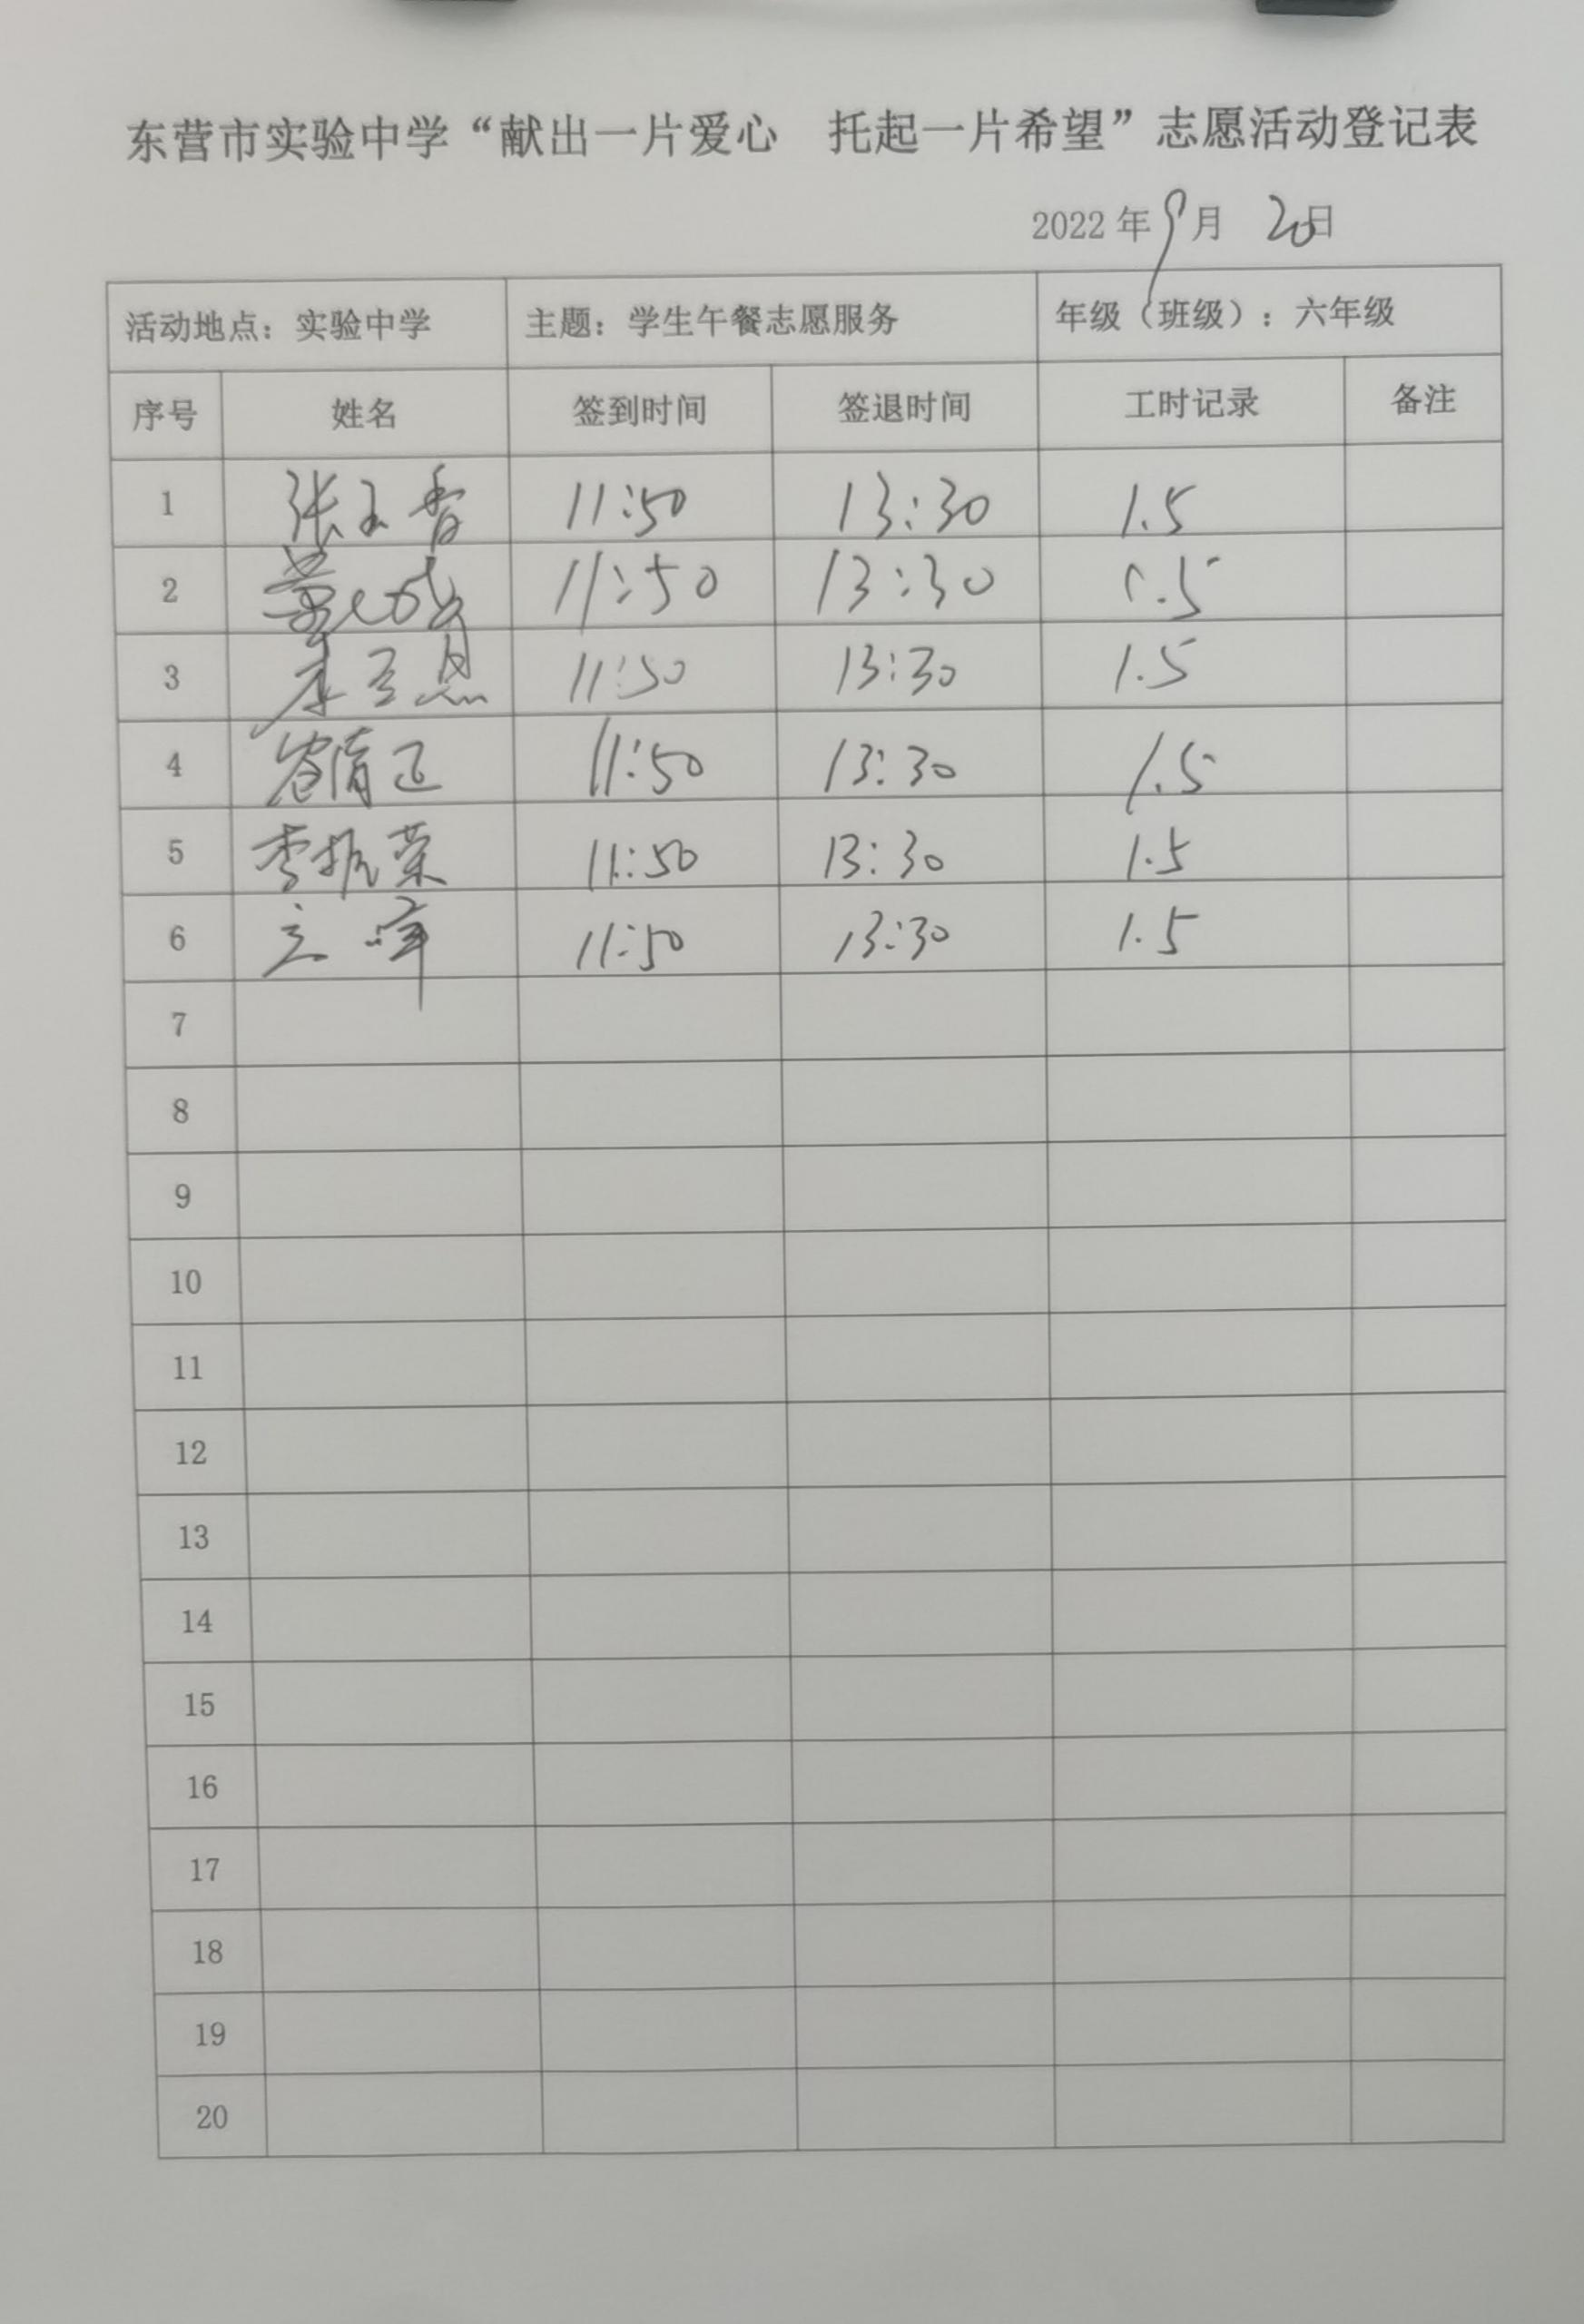 东营市实验中学“献出一片爱心 托起一片希望”志愿活动登记表
2022年9月 20日
活动地点：实验中学 主题：学生午餐志愿服务 年级（班级）：六年级
序号 姓名 签到时间 签退时间 工时记录 备注
1 张玉香 11:50 13:30 1.5
2 11:50 13:30 1.5
3 11:50 13:30 1.5
4 11:50 13:30 1.5
5 李振荣 11:50 13:30 1.5
6 11:50 13:30 1.5
7
8
9
10
11
12
13
14
15
16
17
18
19
20